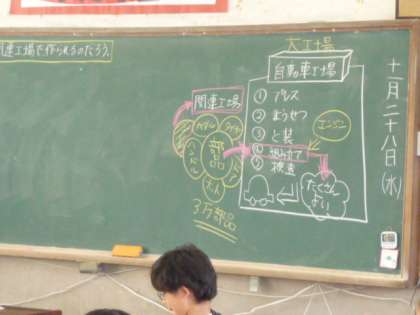 関連工場で作られるのだろう。
大工場
自動車工場
① プレス
② ようせつ
③ と装
④ 組み立て
⑤ 検査
エンジン
関連工場
部品
ハンドル
3万部品
たくさん
十一月二十八日(水)